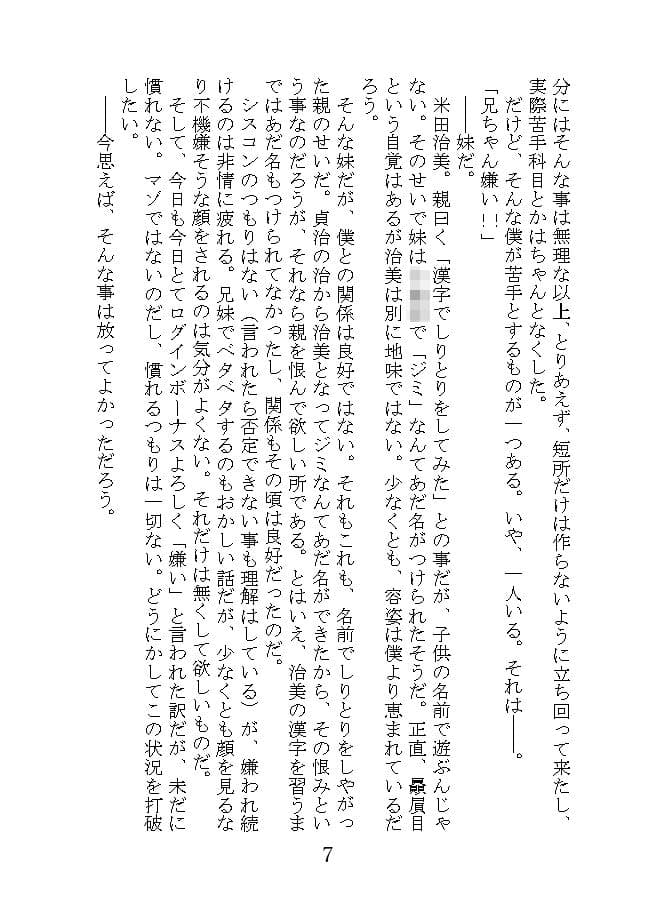 分にはそんな事は無理な以上、とりあえず、短所だけは作らないように立ち回って来たし、
実際苦手科目とかはちゃんとなくした。
　だけど、そんな僕が苦手とするものが一つある。いや、一人いる。それは――。
「兄ちゃん嫌い!!」
　――妹だ。
　米田治美。親曰く「漢字でしりとりをしてみた」との事だが、子供の名前で遊ぶんじゃ
ない。そのせいで妹は で「ジミ」なんてあだ名がつけられたそうだ。正直、贔屓目
という自覚はあるが治美は別に地味ではない。少なくとも、容姿は僕より恵まれているだ
ろう。
　そんな妹だが、僕との関係は良好ではない。それもこれも、名前でしりとりをしやがっ
た親のせいだ。貞治の治から治美となってジミなんてあだ名ができたから、その恨みとい
う事なのだろうが、それなら親を恨んで欲しい所である。とはいえ、治美の漢字を習うま
ではあだ名もつけられてなかったし、関係もその頃は良好だったのだ。
　シスコンのつもりはない（言われたら否定できない事も理解はしている）が、嫌われ続
けるのは非情に疲れる。兄妹でベタベタするのもおかしい話だが、少なくとも顔を見るな
り不機嫌そうな顔をされるのは気分がよくない。それだけは無くして欲しいものだ。
　そして、今日も今日とてログインボーナスよろしく「嫌い」と言われた訳だが、未だに
慣れない。マゾではないのだし、慣れるつもりは一切ない。どうにかしてこの状況を打破
したい。
　――今思えば、そんな事は放ってよかっただろう。
7